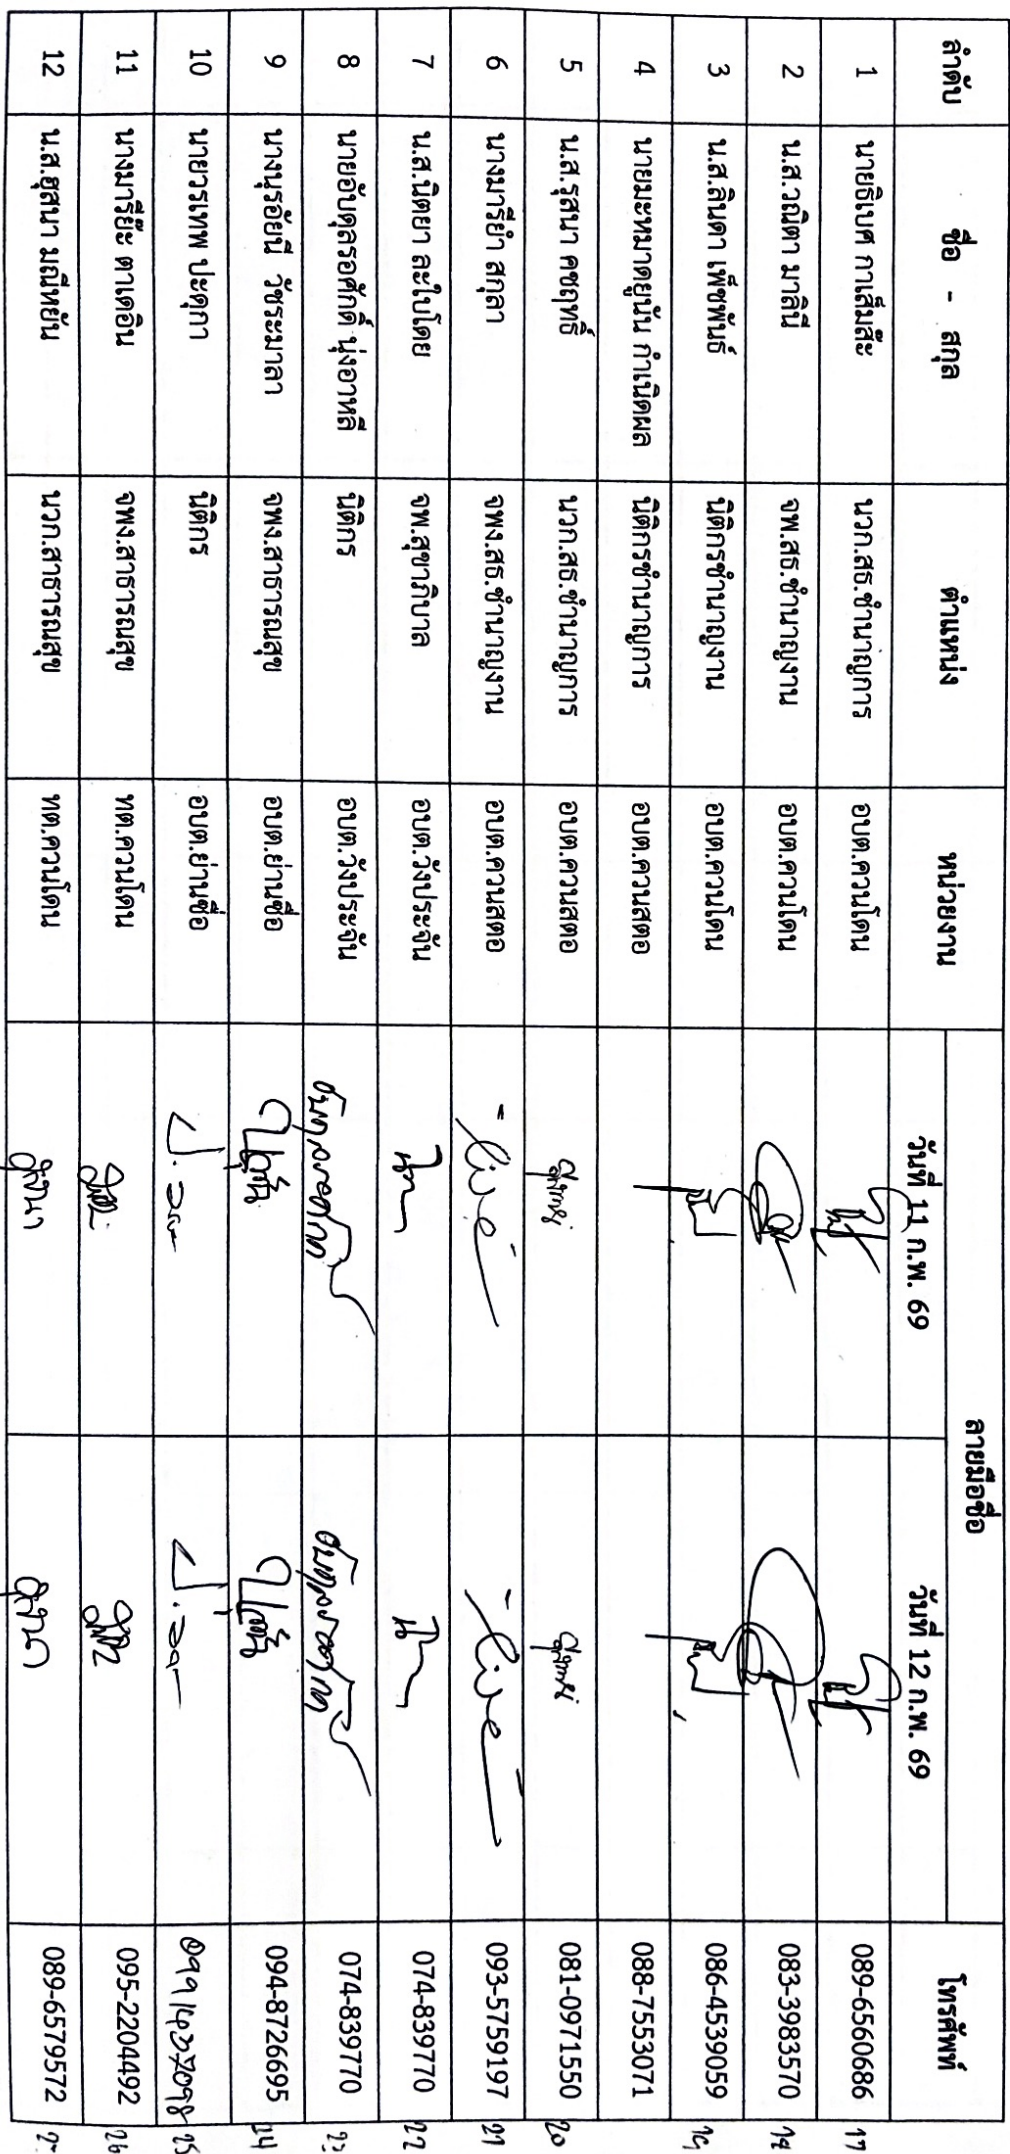 ลำดับ ชื่อ - สกุล ตำแหน่ง หน่วยงาน ลายมือชื่อ โทรศัพท์
วันที่ 11 ก.พ. 69 วันที่ 12 ก.พ. 69
1 นายธิเบศ กาเส็มส๊ะ นวก.สธ.ชำนาญการ อบต.ควนโดน 089-6560686 17
2 น.ส.วณิตา มาลินี จพ.สธ.ชำนาญงาน อบต.ควนโดน 083-3983570 18
3 น.ส.ลินดา เพ็ชพันธ์ นิติกรชำนาญงาน อบต.ควนโดน 086-4539059 19
4 นายมะหมาดยูนัน กำเนิดผล นิติกรชำนาญการ อบต.ควนสตอ 088-7553071
5 น.ส.รุสนา คชฤทธิ์ นวก.สธ.ชำนาญการ อบต.ควนสตอ 081-0971550 20
6 นางมารียำ สกุลา จพง.สธ.ชำนาญงาน อบต.ควนสตอ 093-5759197 21
7 น.ส.นิตยา ละใบโดย จพ.สุขาภิบาล อบต.วังประจัน 074-839770 22
8 นายอับดุลรอศักดิ์ นุ่งอาหลี นิติกร อบต.วังประจัน 074-839770 23
9 นางนุรอัยนี วัชระมาลา จพง.สาธารณสุข อบต.ย่านซื่อ 094-8726695 24
10 นายวรเทพ ปะดุกา นิติกร อบต.ย่านซื่อ 25
11 นางมารีย๊ะ ตาเดอิน จพง.สาธารณสุข ทต.ควนโดน 095-2204492 26
12 น.ส.ฮุสนา มณีหยัน นวก.สาธารณสุข ทต.ควนโดน 089-6579572